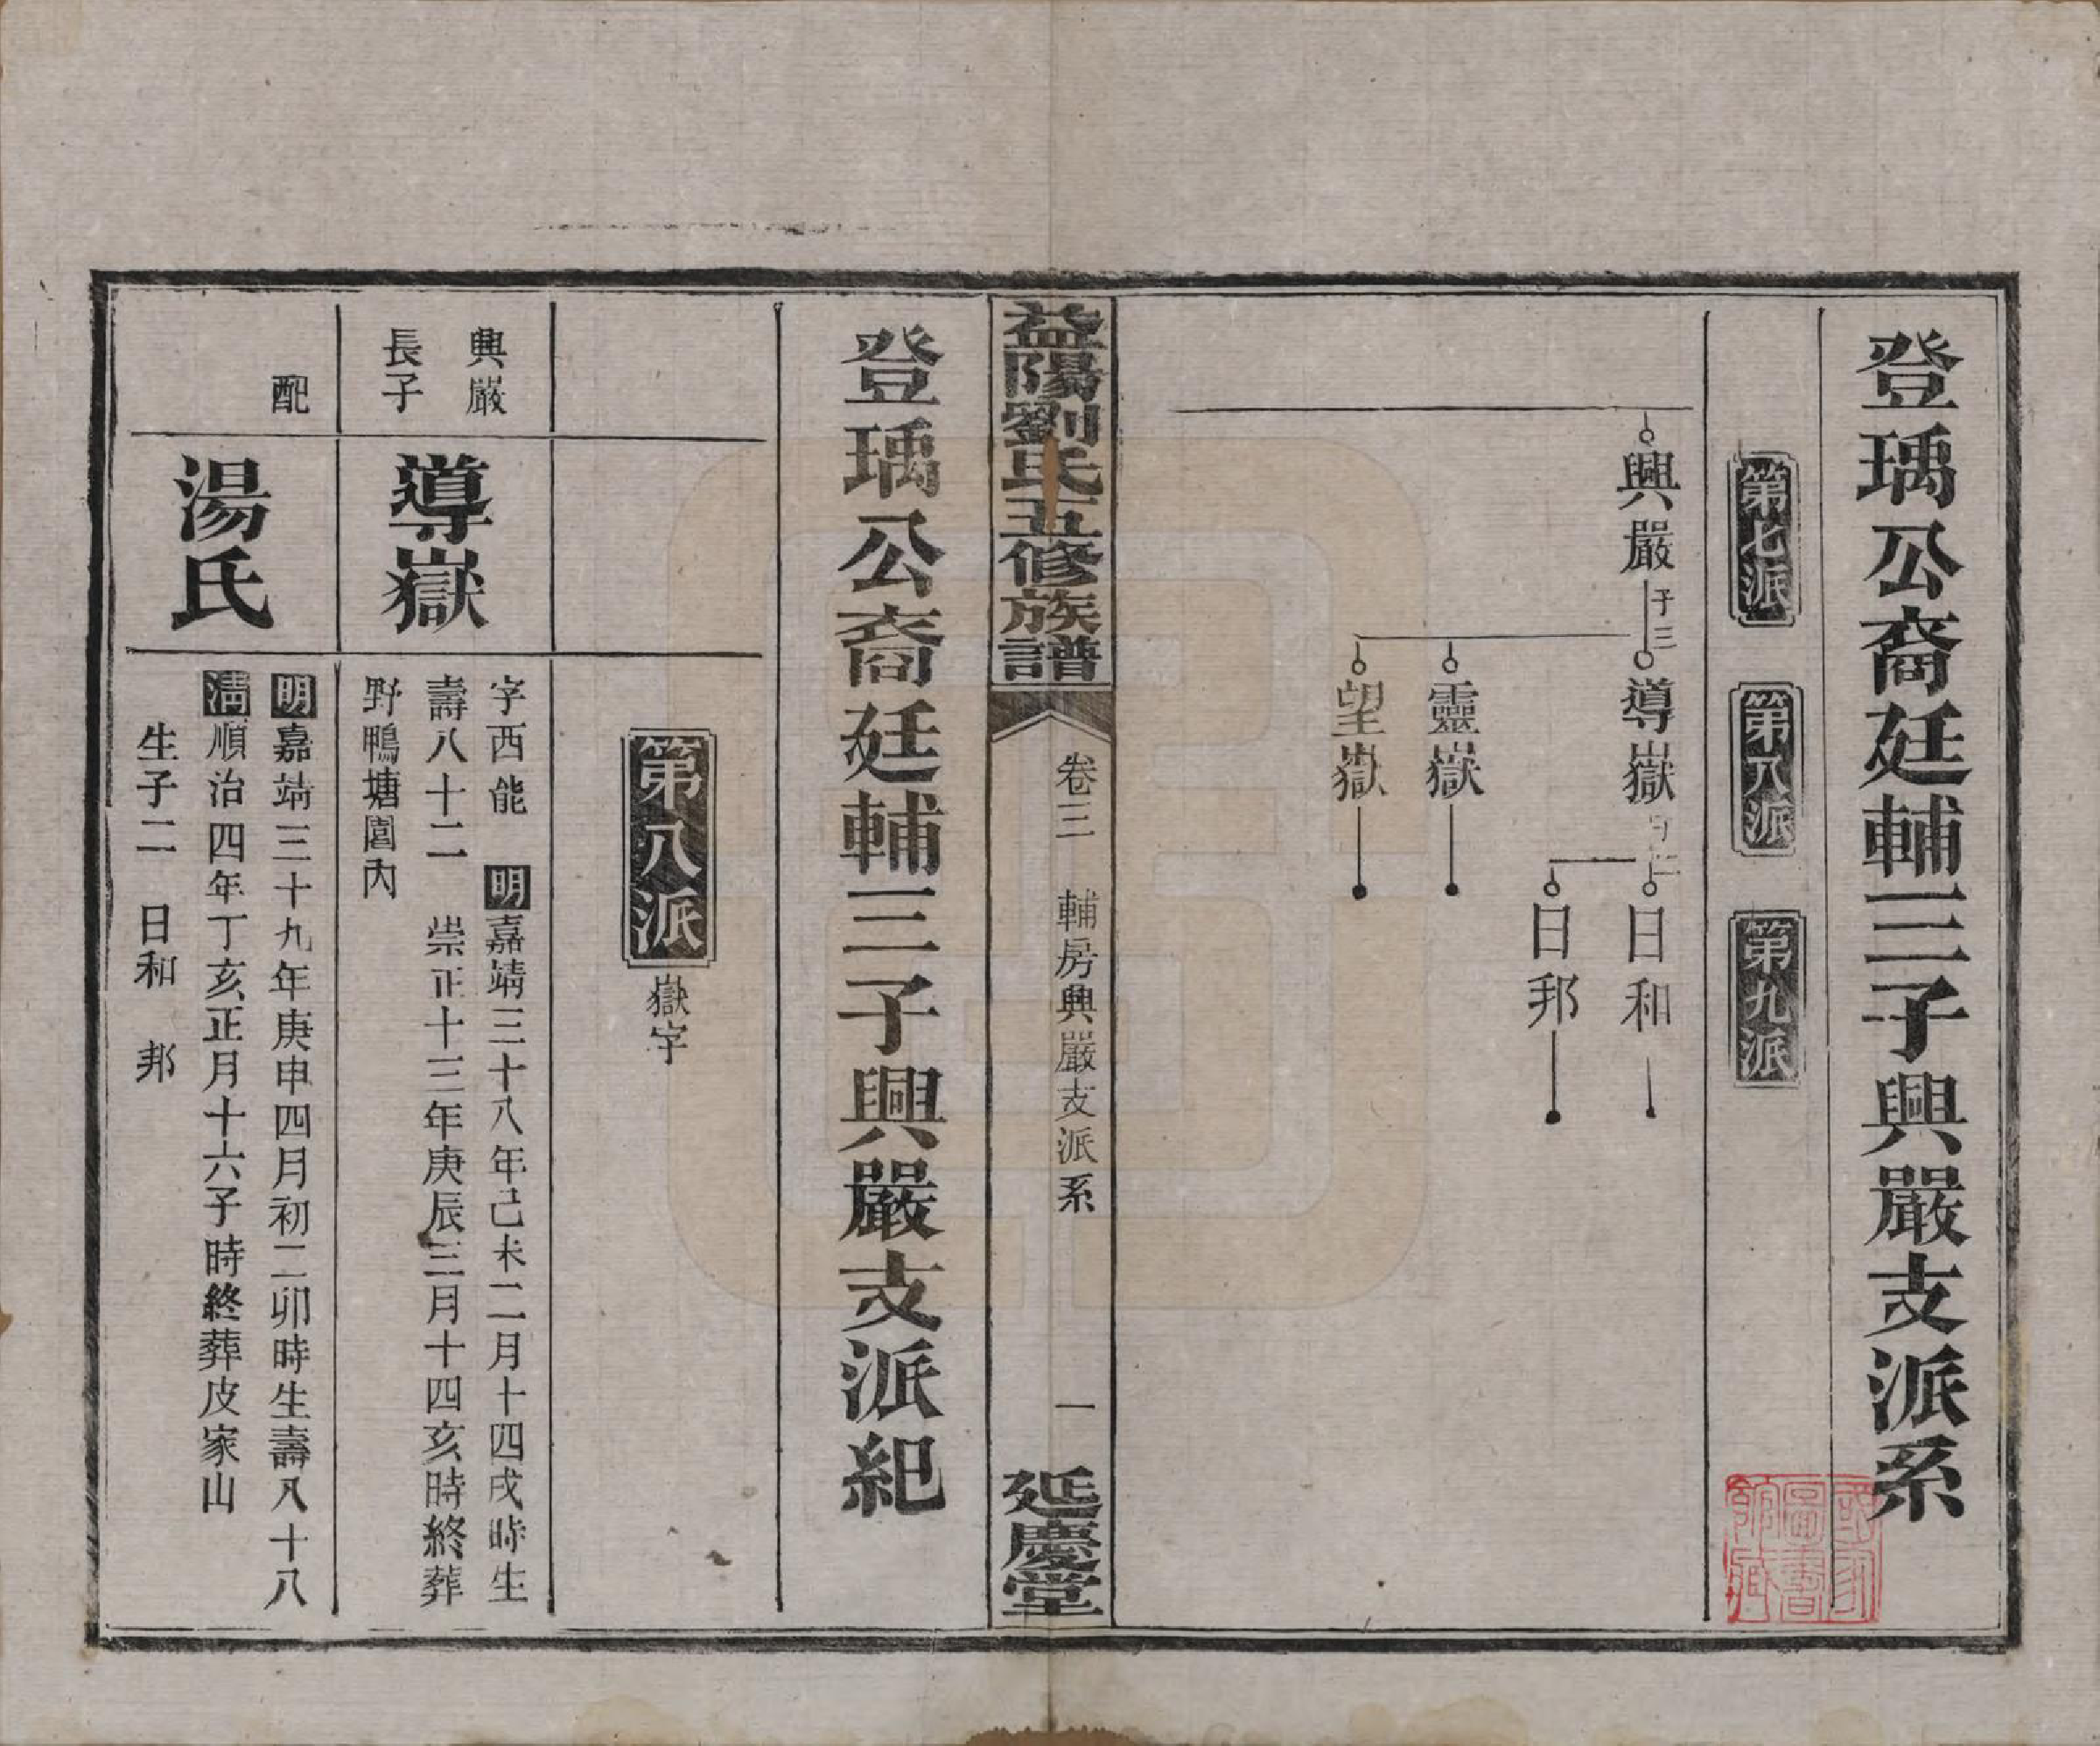 登瑀公裔廷輔三子興嚴支派系
第七派
第八派
第九派
興嚴
子三
導嶽
靈嶽
望嶽
日和
日邦
益陽劉氏五修族譜
卷三
輔房興嚴支派系
一
延慶堂
登瑀公裔廷輔三子興嚴支派紀
第八派
嶽字
興嚴
長子
導嶽
字西能 明嘉靖三十八年己未二月十四戌時生
壽八十二 崇正十三年庚辰三月十四亥時終葬
野鴨塘園內
配
湯氏
明嘉靖三十九年庚申四月初二卯時生壽八十八
清順治四年丁亥正月十六子時終葬皮家山
生子二 日和 邦
國家
圖書
館藏